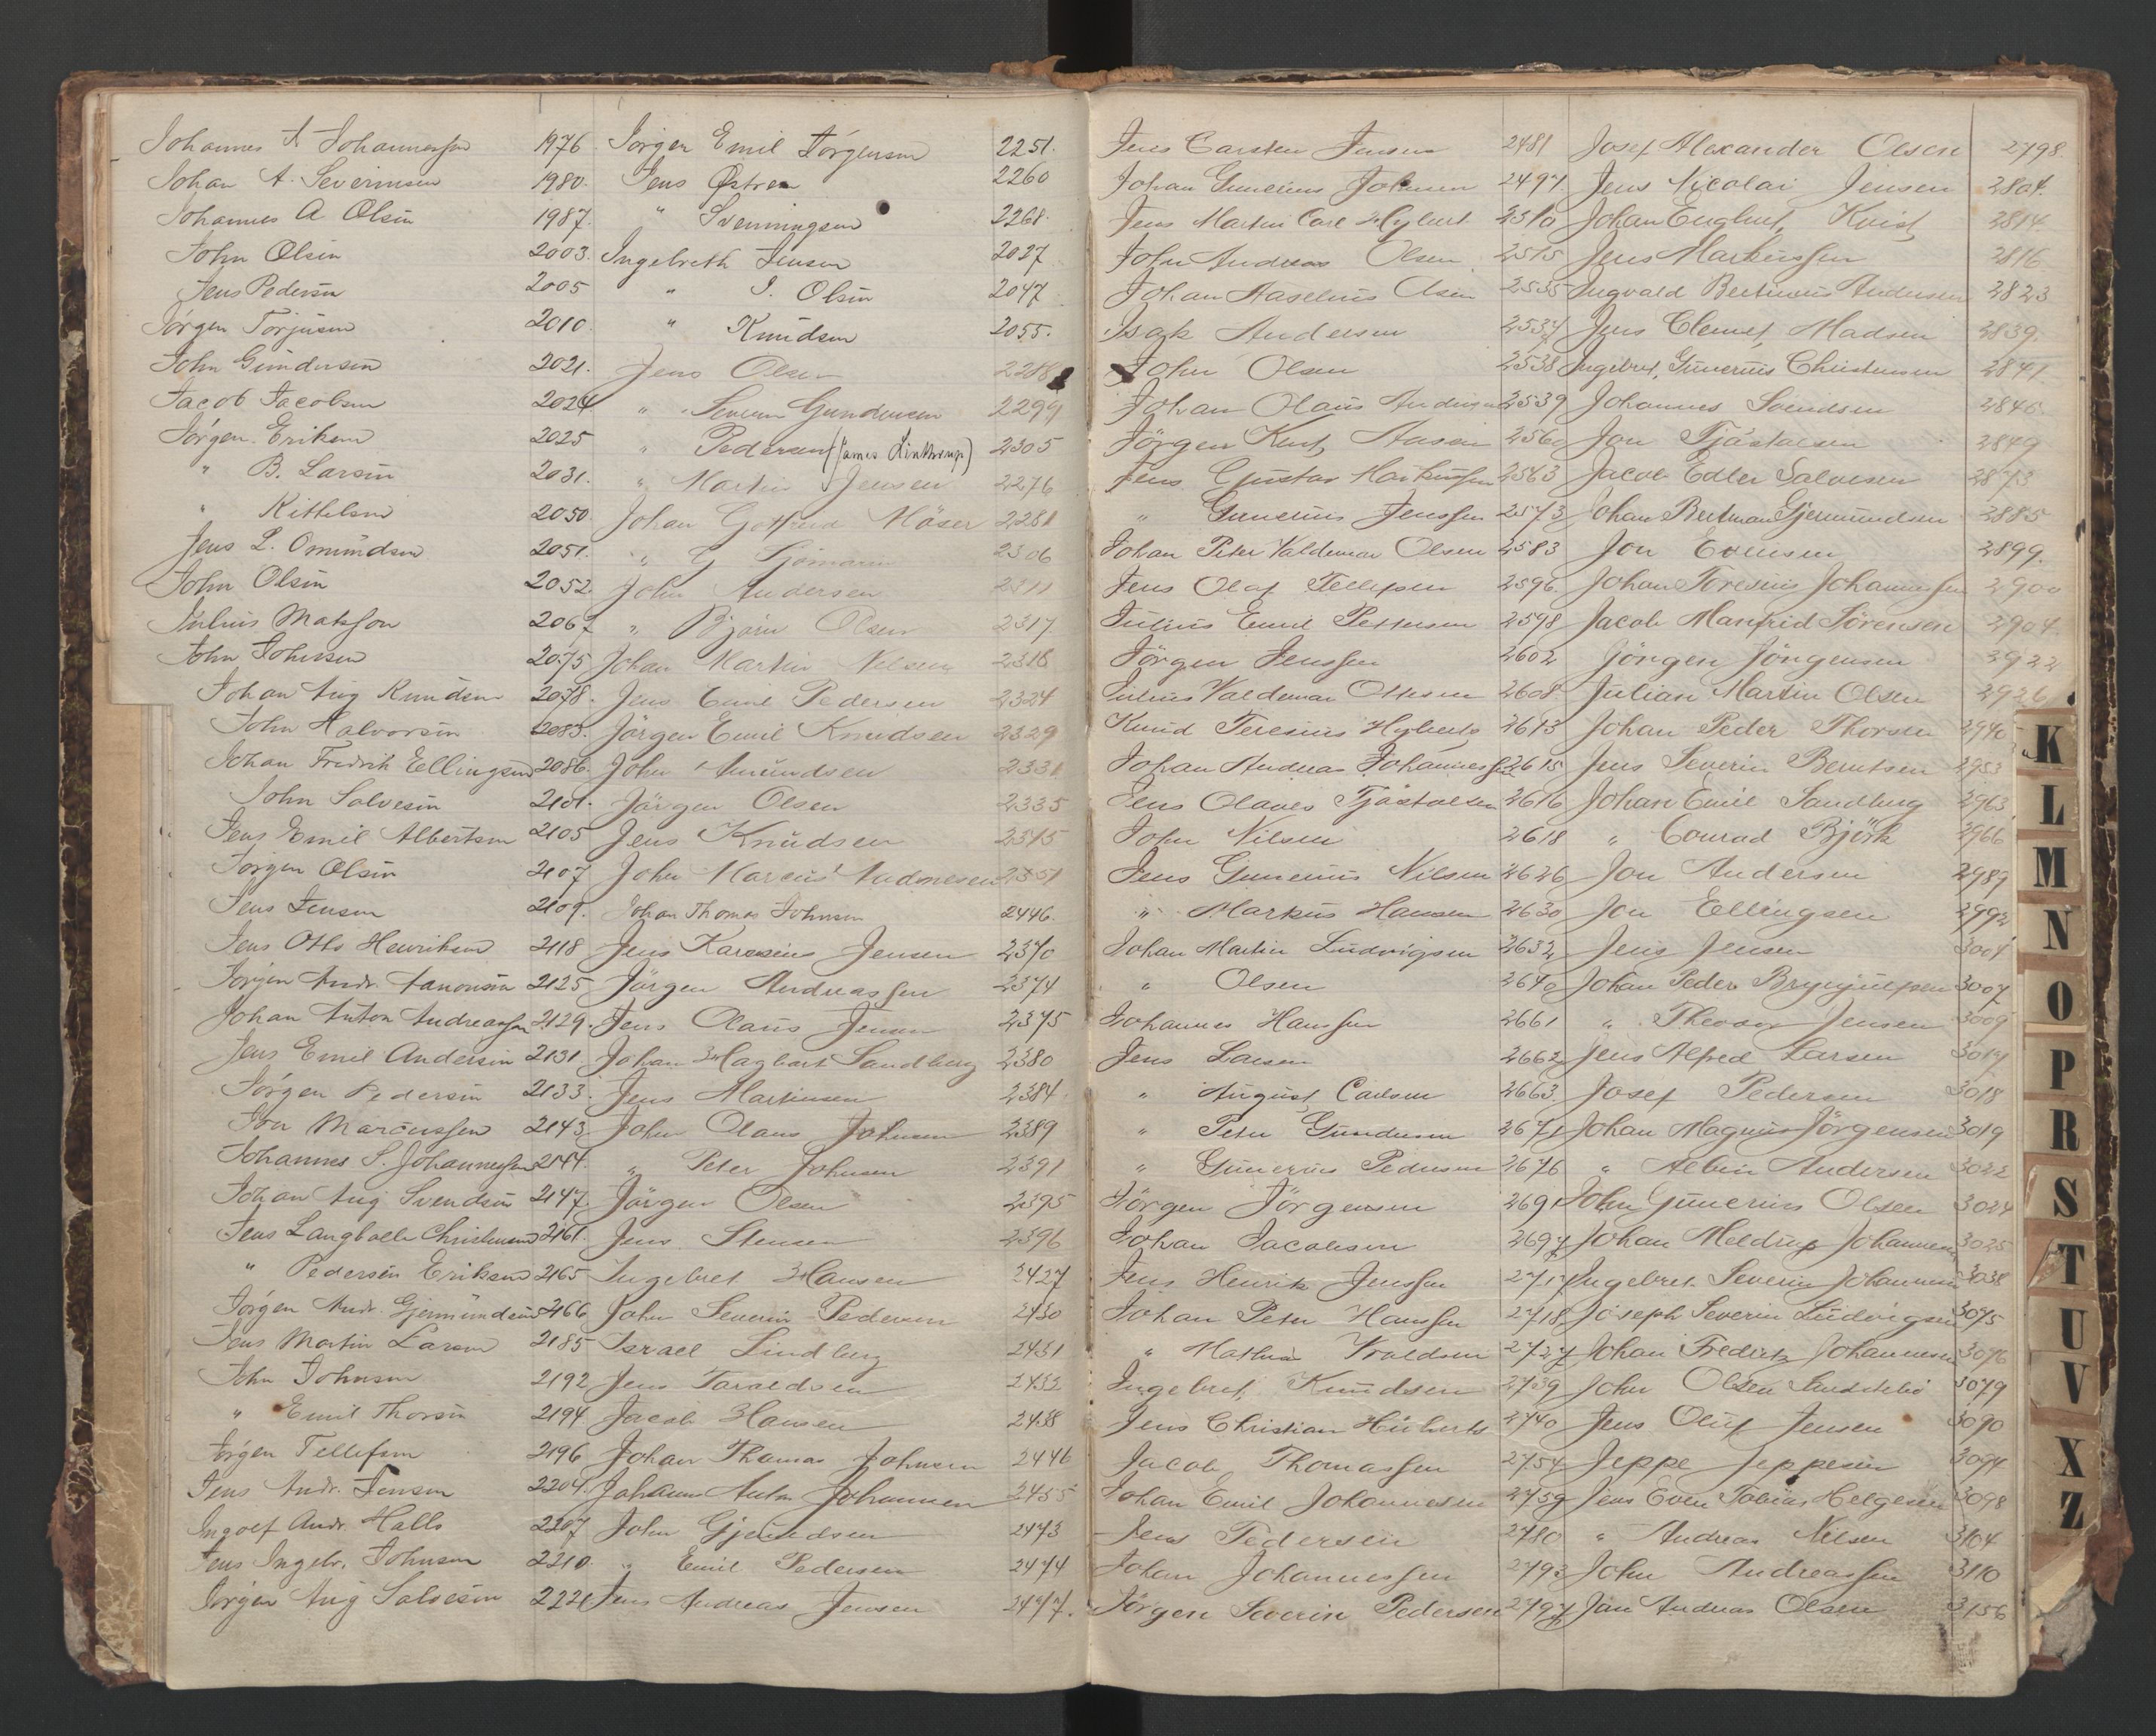 Johannes A Johannessen 1976
Johan A. Severinsen 1980.
Johannes A Olsen 1987.
John Olsen 2003.
Jens Pedersen 2005
Jörgen Torjusen 2010.
John Gundersen 2021.
Jacob Jacobsen 2024
Jörgen Eriksen 2025
" B. Larsen 2031.
" Kittelsen 2050.
Jens L. Omundsen 2051.
John Olsen 2052
Julius Matsson 2067
John Johnsen 2075
Johan Aug Knudsen 2078.
John Halvorsen 2083.
Johan Fredrik Ellingsen 2086.
John Salvesen 2101.
Jens Emil Albertsen 2105
Jörgen Olsen 2107
Jens Jensen 2109.
Jens Otto Henriksen 2118
Jörgen Andr. Aanonsen 2125
Johan Anton Andreassen 2129.
Jens Emil Andersen 2131.
Jörgen Pedersen 2133.
Iver Marcussen 2143
Johannes S. Johannessen 2144.
Johan Aug Svendsen 2147.
Jens Langballe Christensen 2161.
" Pedersen Eriksen 2165
Jörgen Andr. Gjermundsen 2166
Jens Martin Larsen 2185
John Johnsen 2192
" Emil Thorsen 2194
Jörgen Tellefsen 2196
Jens Andr. Jensen 2204.
Ingolf Andr. Halls 2207
Jens Ingebr. Johnsen 2210.
Jörgen Aug Salvesen 2221
Jörgen Emil Jörgensen 2251.
Jens Østren 2260
" Svenningsen 2268.
Ingebreth Jensen 2027
" J. Olsen 2047
" Knudsen 2055.
Jens Olsen 2288
" Severin Gundersen 2299
" Pedersen (James Linktrup) 2305
" Martin Jensen 2276
Johan Gotfred Möser 2281
" G Sjömarin 2306
John Andersen 2311
" Björn Olsen 2317.
Johan Martin Nilsen 2318
Jens Emil Pedersen 2324
Jörgen Emil Knudsen 2329
John Amundsen 2331
Jörgen Olsen 2335
Jens Knudsen 2345
John Marcus Andresen 2351
Johan Thomas Johnsen 2446.
Jens Karenius Jensen 2370
Jörgen Andreassen 2374
Jens Olaus Jensen 2375
Johan Hagbart Sandberg 2380
Jens Martinsen 2384.
John Olaus Johnsen 2389
" Peter Johnsen 2391
Jörgen Olsen 2395
Jens Stensen 2396
Ingebret Hansen 2427
John Severin Pedersen 2430
Israel Lindberg 2431
Jens Taraldsen 2432
Jacob Hansen 2438
Johan Thomas Johnsen 2446
Johannes Anton Johannesen 2455
John Gjeruldsen 2473
" Emil Pedersen 2474
Jens Andreas Jensen 2477.
Jens Carsten Jensen 2481
Johan Gunerius Johnsen 2497.
Jens Martin Carl Hybert 2510
John Andreas Olsen 2515
Johan Aaselius Olsen 2535
Isak Andersen 2537
John Olsen 2538
Johan Olaus Andersen 2539
Jörgen Knut Aasen 2560
Jens Gustav Markussen 2563
" Gunerius Jenssen 2573
Johan Peter Valdemar Olsen 2583
Jens Olaf Tellefsen 2596.
Julius Emil Pettersen 2598
Jörgen Jenssen 2602
Julius Valdemar Ottesen 2608
Knud Teresius Hyberts 2613
Johan Andreas Johannessen 2615
Jens Olaves Tjöstolsen 2616
John Nilsen 2618
Jens Gunerius Nilsen 2626
" Markus Hansen 2630
Johan Martin Ludvigsen 2632
" Olsen 2640
Johannes Hanssen 2661
Jens Larsen 2662
" August Carlsen 2663.
" Peter Gundersen 2671
" Gunerius Pedersen 2676
Jörgen Jörgensen 2691
Johan Jacobsen 2697
Jens Henrik Jenssen 2717
Johan Peter Hanssen 2718
" Mathias Vroldsen 2727
Ingebret Knudsen 2739
Jens Christian Hüberts 2740
Jacob Thomassen 2754
Johan Emil Johannesen 2759
Jens Pedersen 2780
Johan Johannessen 2793
Jörgen Severin Pedersen 2797
Josef Alexander Olsen 2798.
Jens Nicolai Jensen 2804.
Johan Englbret Kvist 2814
Jens Markussen 2816
Ingvald Bertinius Andersen 2823
Jens Clemet Madsen 2839.
Ingebret Gunerius Christensen 2841
Johannes Svendsen 2846.
Jon Tjöstolsen 2849
Jacob Edler Salvesen 2873
Johan Bertman Gjermundsen 2885
Jon Evensen 2899.
Johan Toresius Johannessen 2900
Jacob Manfred Sörensen 2904.
Jörgen Jörgensen 2922
Julian Martin Olsen 2926
Johan Peder Thorsen 2940
Jens Severin Berntsen 2953
Johan Emil Sandberg 2963
" Conrad Björk 2966
Jon Andersen 2989
Jon Ellingsen 2992
Jens Jensen 3004
Johan Peder Brynjulfsen 3007
" Theodor Jensen 3009
Jens Alfred Larsen 3017
Josef Pedersen 3018
Johan Magnus Jörgensen 3019
" Albin Andersen 3022
John Gunerius Olsen 3024
Johan Meldrup Johannesen 3025
Ingebret Severin Johannesen 3038
Joseph Severin Ludvigsen 3075
Johan Fredrik Johannesen 3076
John Olsen 3079
Jens Oluf Jensen 3090
Jeppe Jeppesen 3094
Jens Even Tobias Helgesen 3098
" Andreas Nilsen 3104
John Andreassen 3110
Jan Andreas Olsen 3156
K
L
M
N
O
P
R
S
T
U
V
X
Z